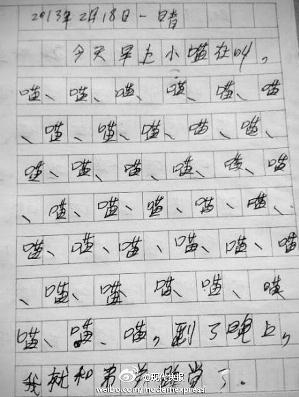 2013年2月18日一晴
今天早上小喵在叫。
喵、喵、喵、喵、喵、喵
、喵、喵、喵、喵、喵、
喵、喵、喵、喵、喵、喵
、喵、喵、喵、喵、喵、
喵、喵、喵、喵、喵、喵
、喵、喵、喵、喵、喵
喵、喵、喵，到了晚上，
我就和弟弟睡觉了.
@现代快报
weibo.com/modernexpress